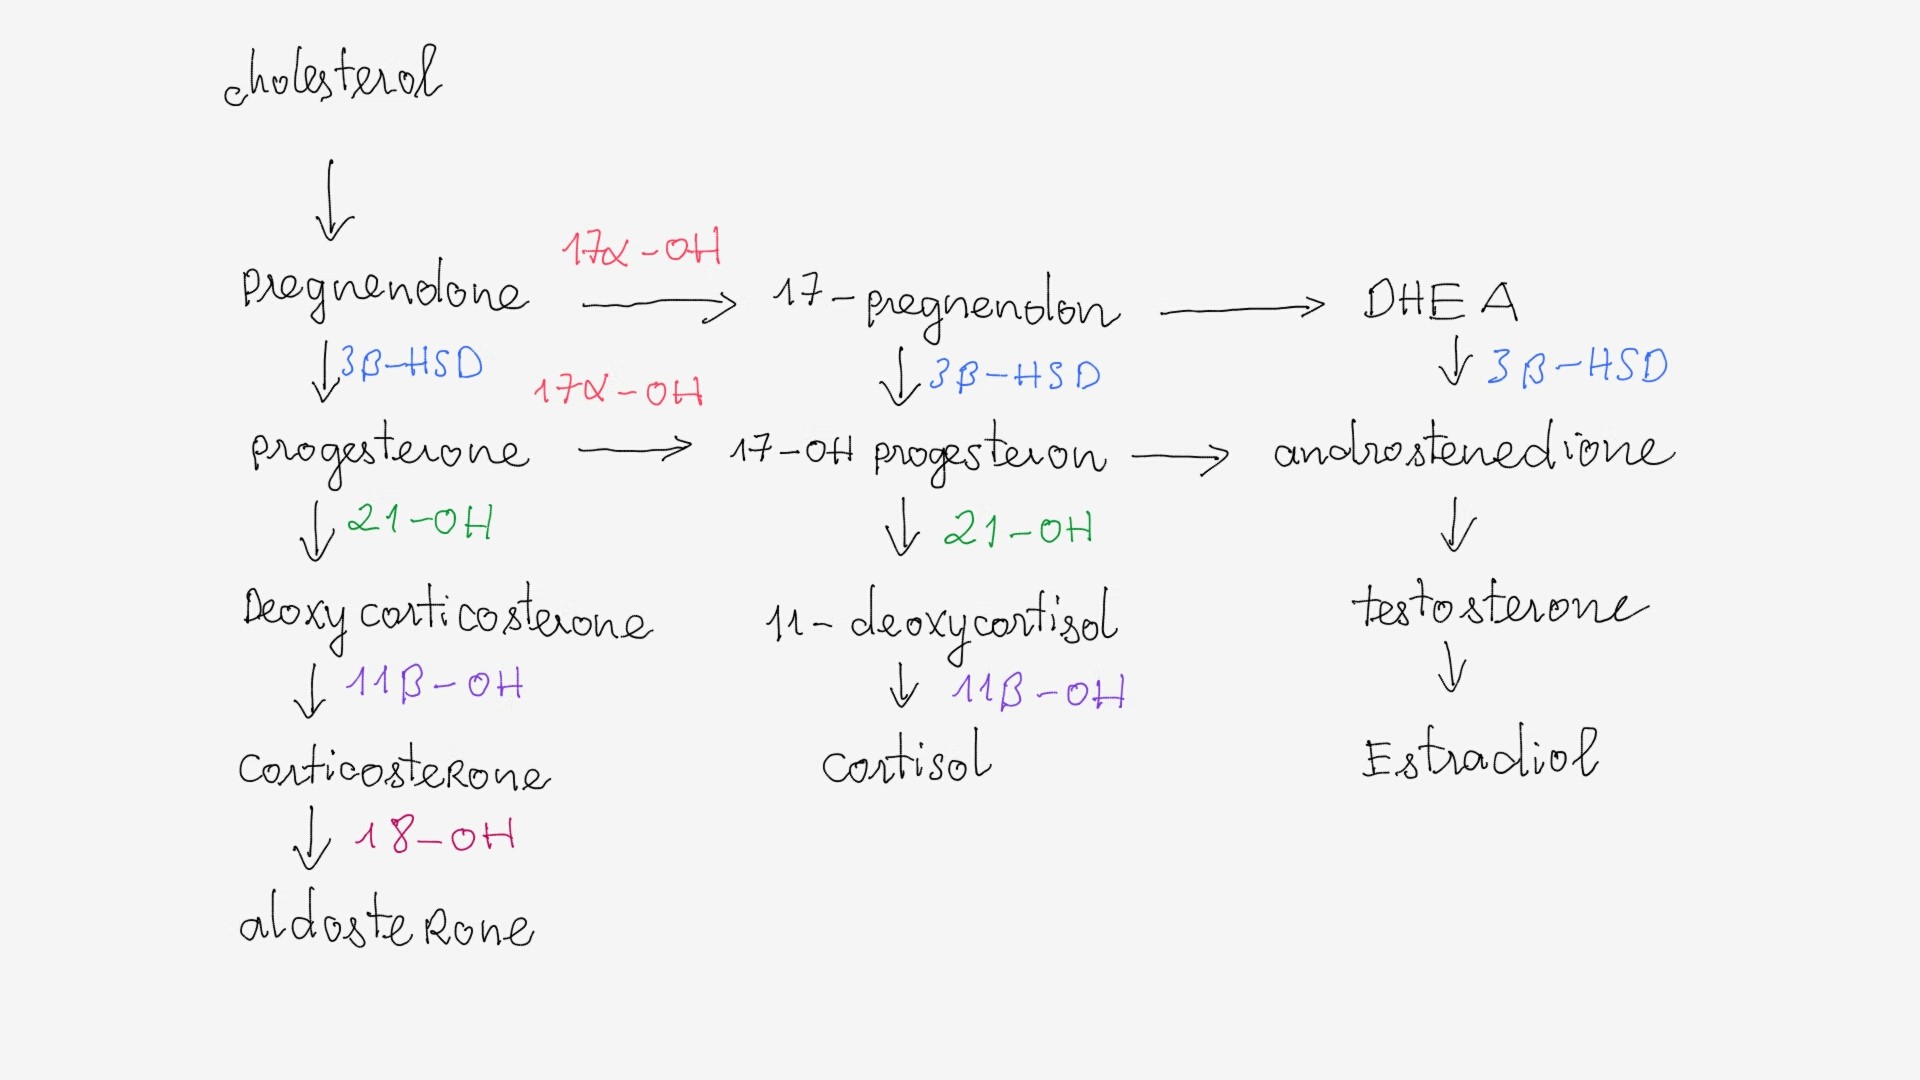 cholesterol
17α-OH
pregnenolone 17-pregnenolon DHEA
3β-HSD 3β-HSD 3β-HSD
17α-OH
progesterone 17-OH progesteron androstenedione
21-OH 21-OH
Deoxycorticosterone 11-deoxycortisol testosterone
11β-OH 11β-OH
Corticosterone cortisol Estradiol
18-OH
aldosterone